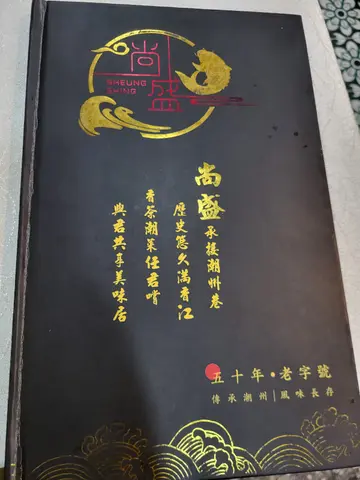 尚盛
SHEUNG
SHING
尚盛承接潮州巷
歷史悠久滿香江
香茶潮菜任君嚐
與君共享美味居
五十年·老字號
傳承潮州|風味長存